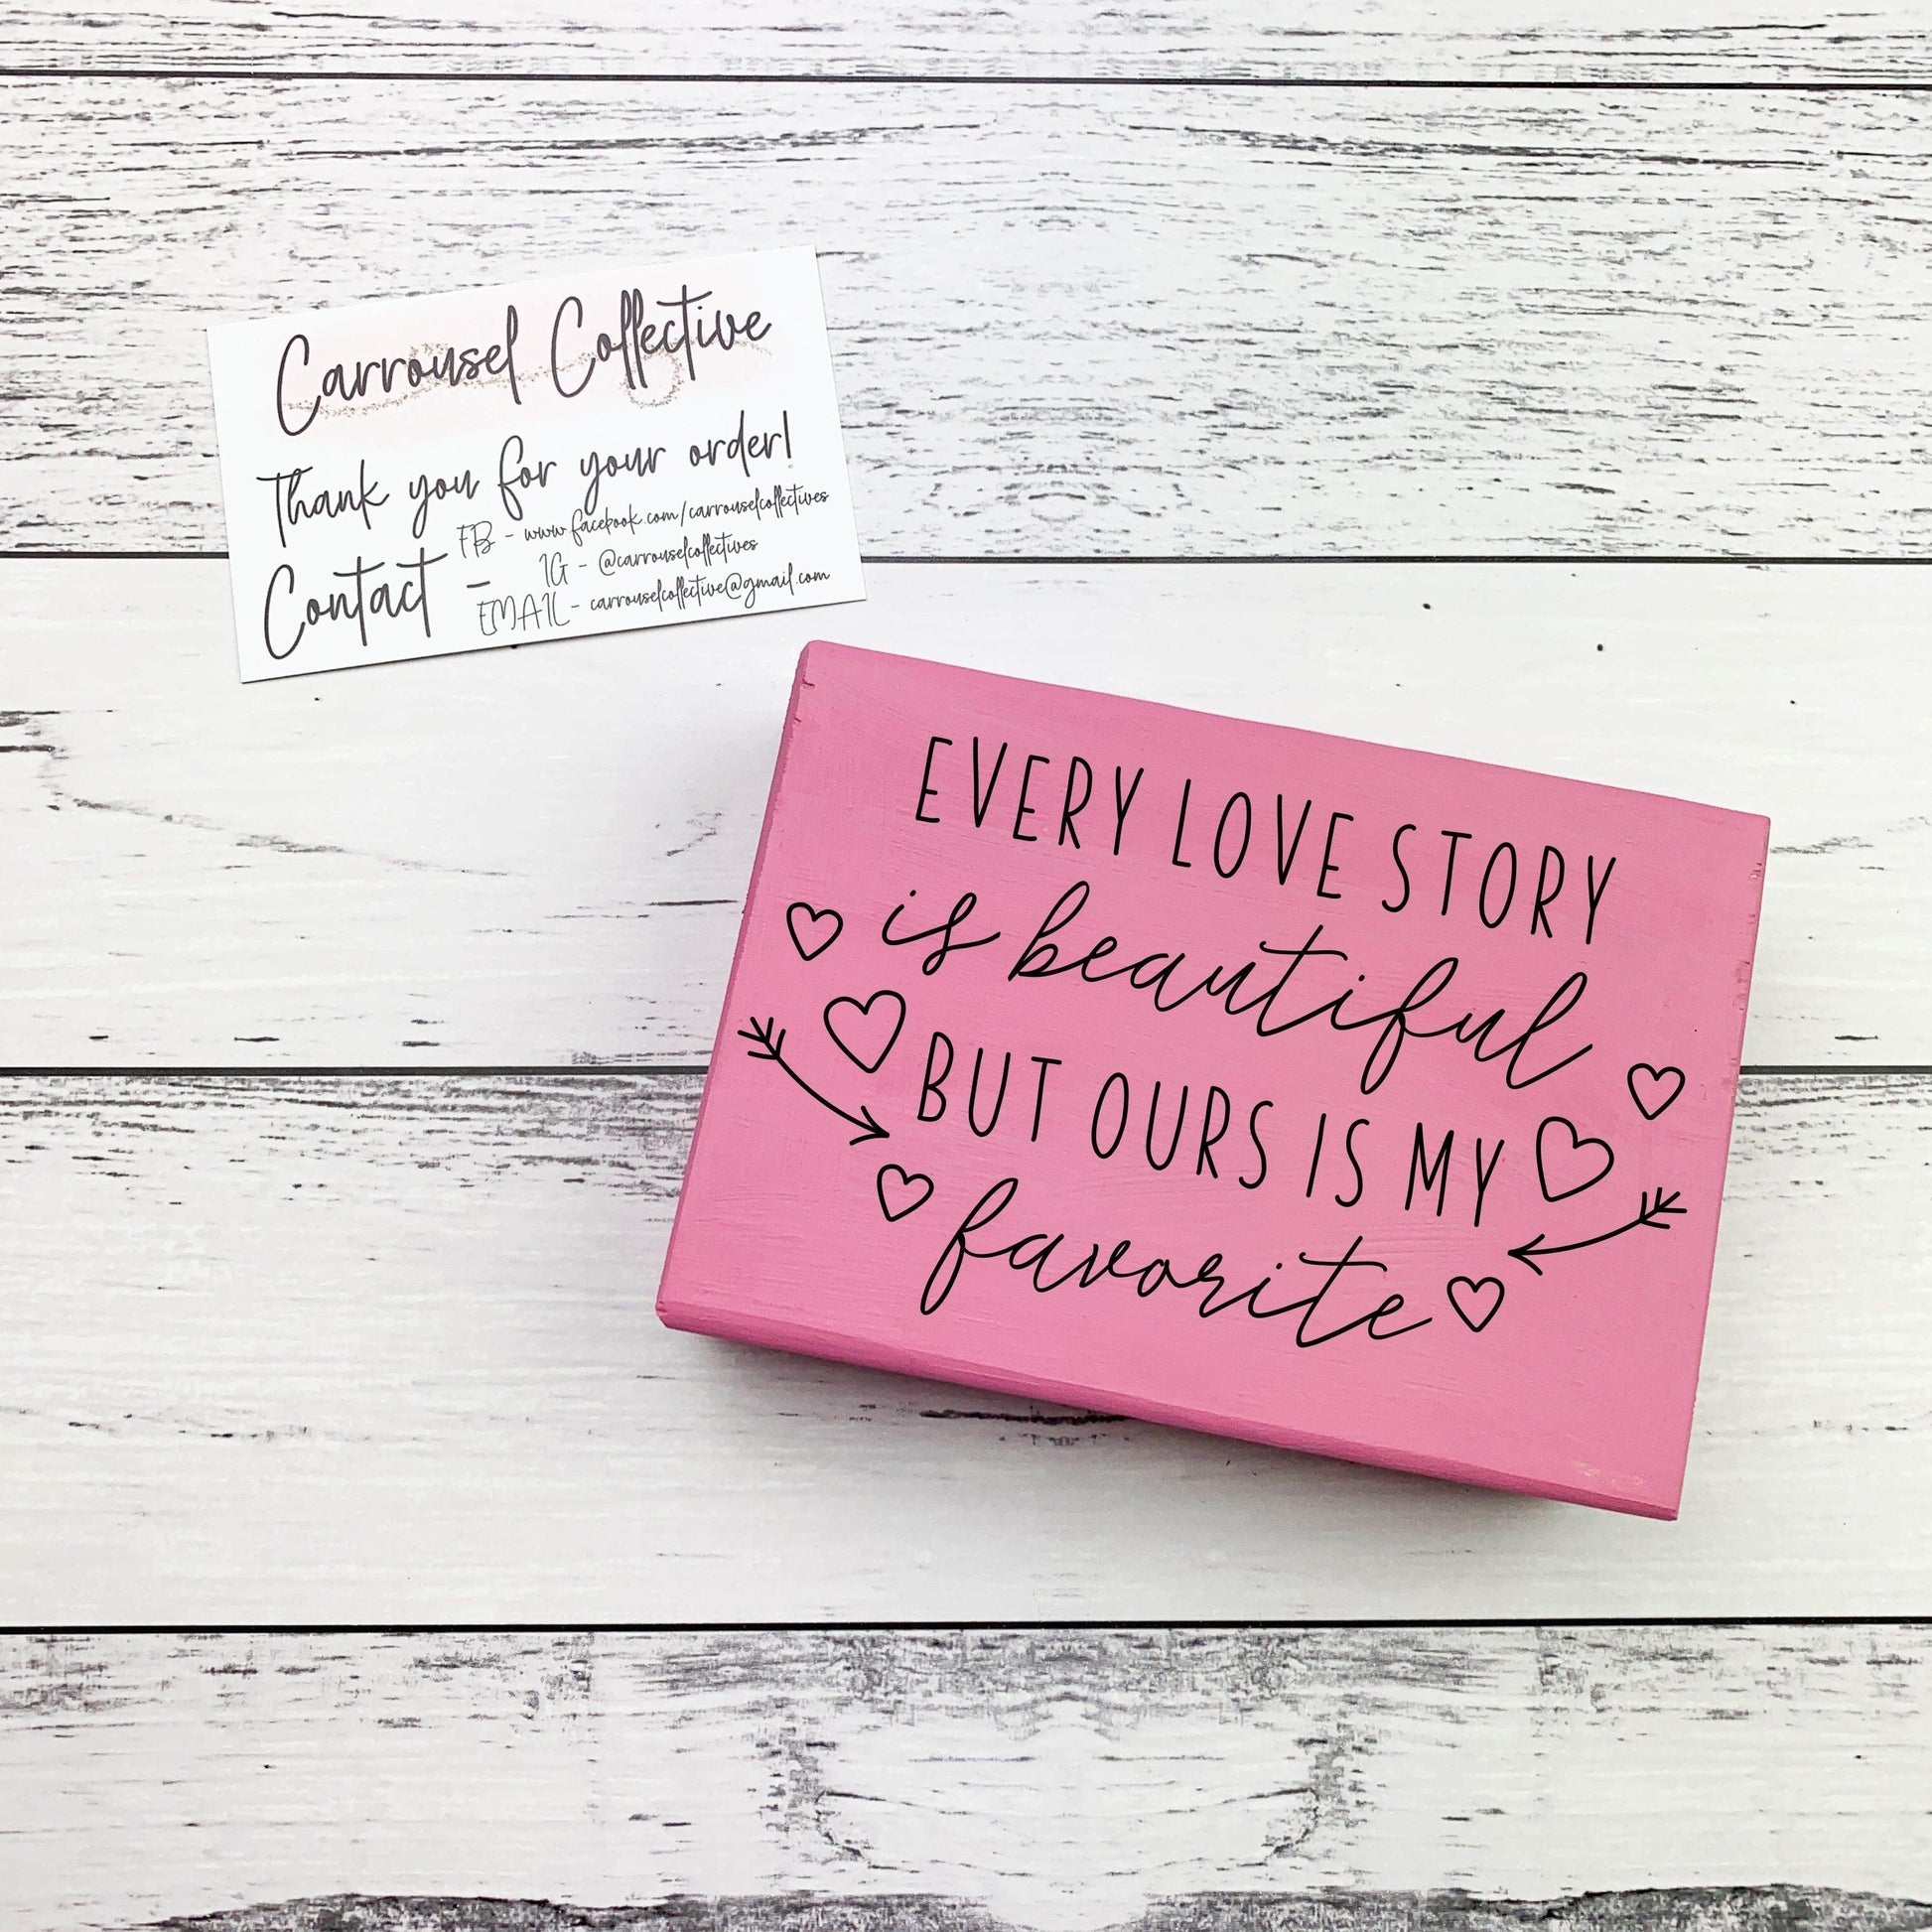 Carrousel Collective
Thank you for your order!
Contact -
FB - www.facebook.com/carrouselcollectives
IG - @carrouselcollectives
EMAIL - carrouselcollective@gmail.com
EVERY LOVE STORY
is beautiful
BUT OURS IS MY
favorite